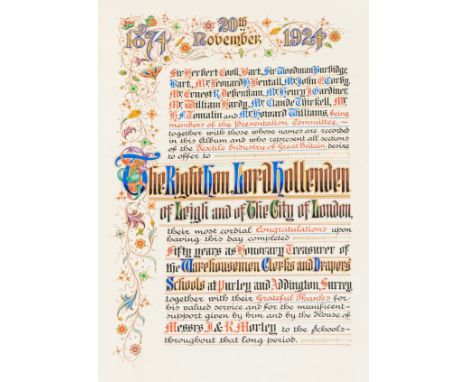 1874 20th November 1924
Sir Herbert Cook, Bart., Sir Woodman Burbidge,
Bart., Mr. Leonard H. Bentall, Mr. John O. Corby,
Mr. Ernest R. Debenham, Mr. Henry J. Gardiner,
Mr. William Hardy, Mr. Claude Thirkell, Mr.
H. F. Tomalin and Mr. Howard Williams, being
members of the Presentation Committee,
together with those whose names are recorded
in this Album and who represent all sections
of the Textile Industry of Great Britain desire
to offer to
The Right Hon. Lord Hollenden
of Leigh and of The City of London,
their most cordial Congratulations upon
having this day completed
Fifty years as Honorary Treasurer of
the Warehousemen Clerks and Drapers
Schools at Purley and Addington, Surrey
together with their Grateful Thanks for
his valued service and for the munificent
support given by him and by the House of
Messrs I. & R. Morley to the Schools
throughout that long period.